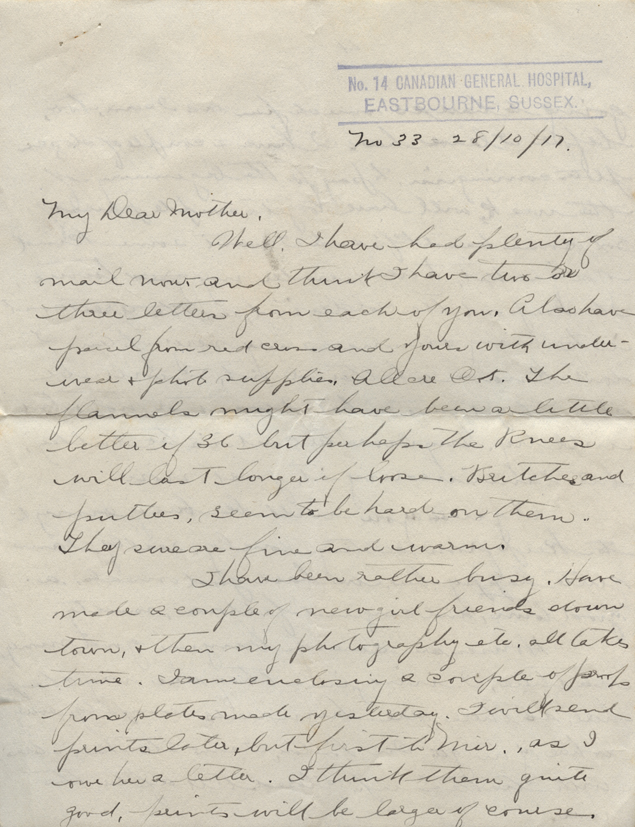 No. 14 CANADIAN GENERAL HOSPITAL,
EASTBOURNE, SUSSEX.
No 33 28/10/17.
My Dear Mother.
Well. I have had plenty of
mail now and think I have two or
three letters from each of you. Also have
parcel from red cross and yours with under-
wear + photo supplies. All are O.K. The
flannels might have been a little
better if 36 but perhaps the Knees
will last longer if loose. Britches and
putties, seem to be hard on them.
They sure are fine and warm.
I have been rather busy. Have
made a couple of new girl friends down
town, + then my photography etc. all takes
time. I am enclosing a couple of proofs
from plates made yesterday. I will send
prints later, but first to Mir., as I
owe her a letter. I think them quite
good, prints will be larger of course.